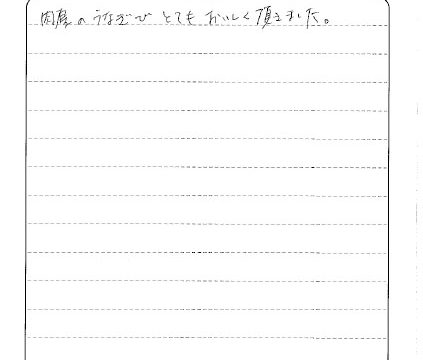 肉厚のうなぎで とても おいしく頂きました。